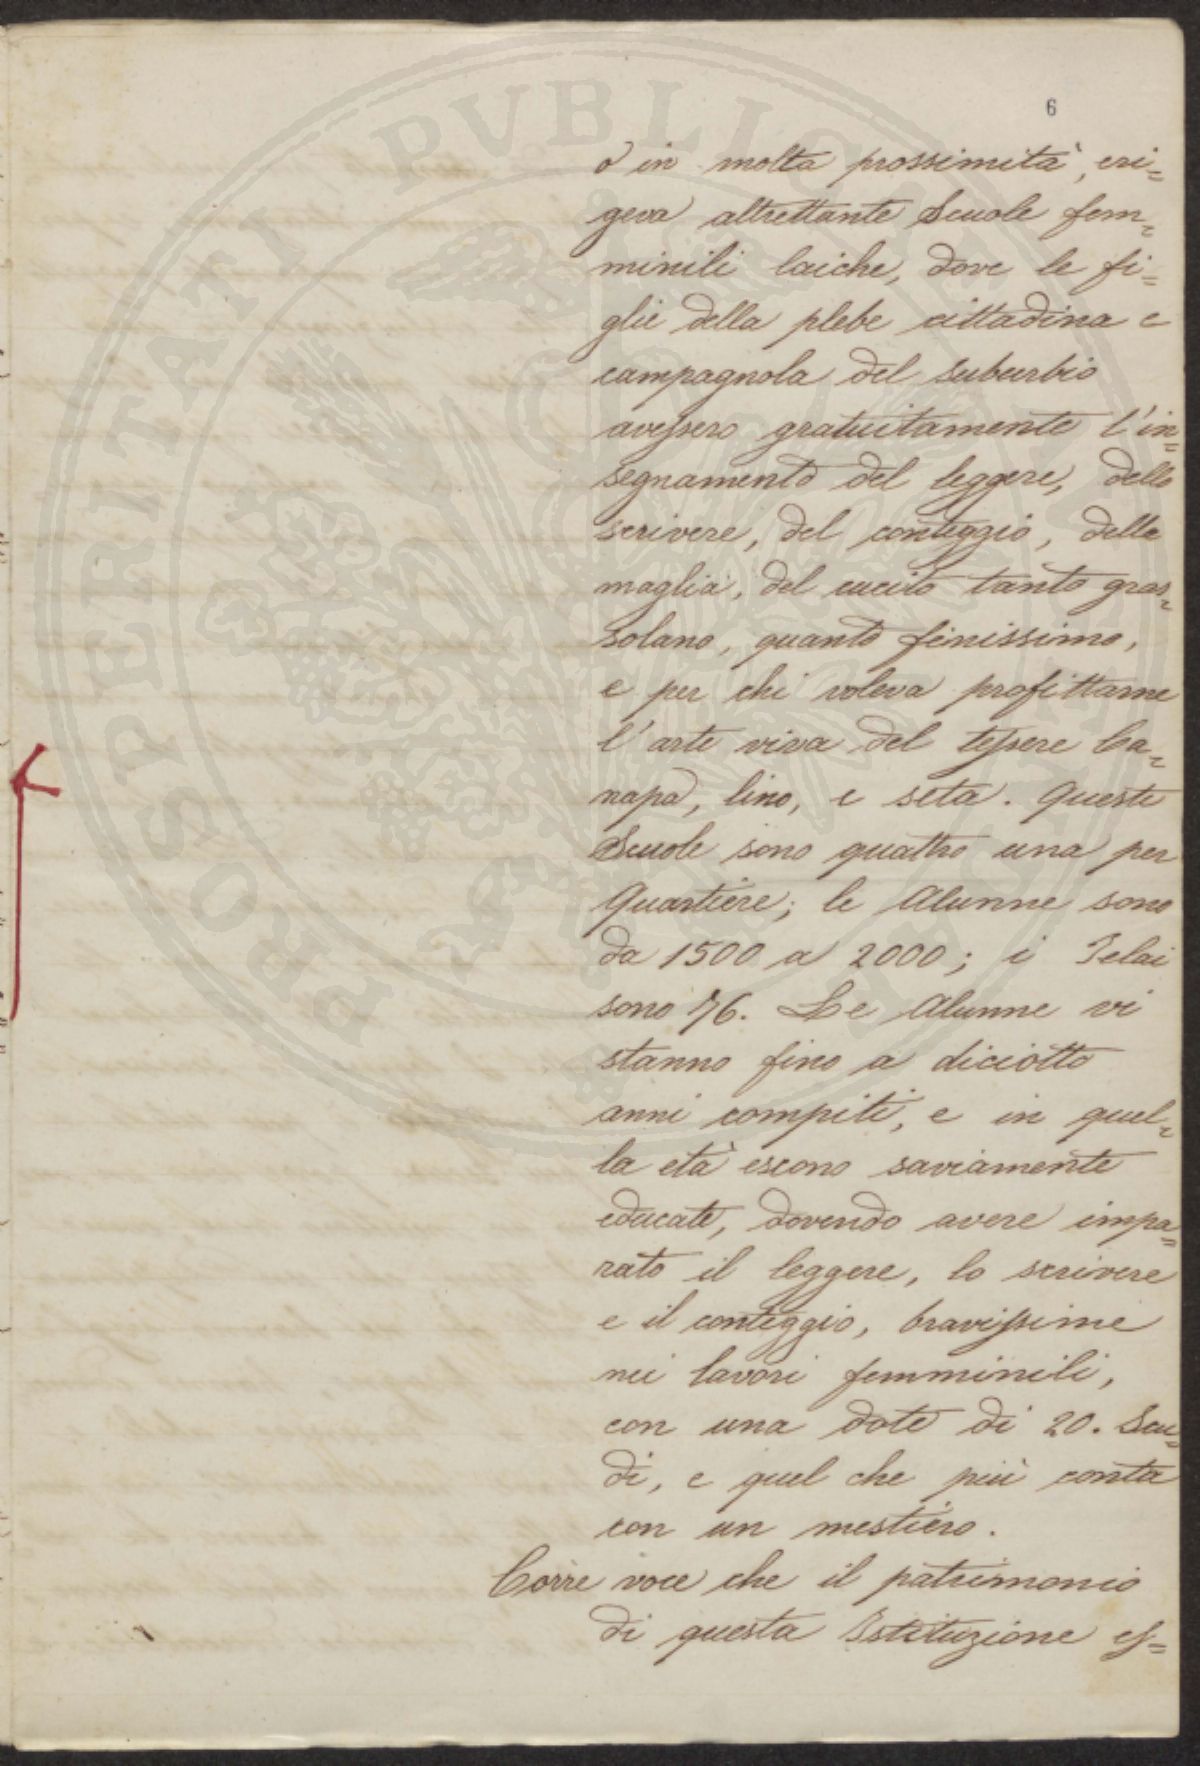 6
o in molta prossimità, eri=
geva altrettante Scuole fem=
minili laiche, dove le fi=
glie della plebe cittadina e
campagnola del suburbio
avessero gratuitamente l'in=
segnamento del leggere, dello
scrivere, del conteggio, della
maglia, del cucito tanto gras=
solano, quanto finissimo,
e per chi voleva profittarne
l'arte viva del tessere Ca=
napa, lino, e seta. Queste
Scuole sono quattro una per
Quartiere; le Alunne sono
da 1500 a 2000; i Telai
sono 76. Le Alunne vi
stanno fino a diciotto
anni compiti, e in quel=
la età escono saviamente
educate, dovendo avere impa=
rato il leggere, lo scrivere
e il conteggio, bravissime
nei lavori femminili,
con una dote di 20. Scu=
di, e quel che più conta
con un mestiero.
Corre voce che il patrimonio
di questa Istituzione es=
PROSPERITATI PVBLICAE